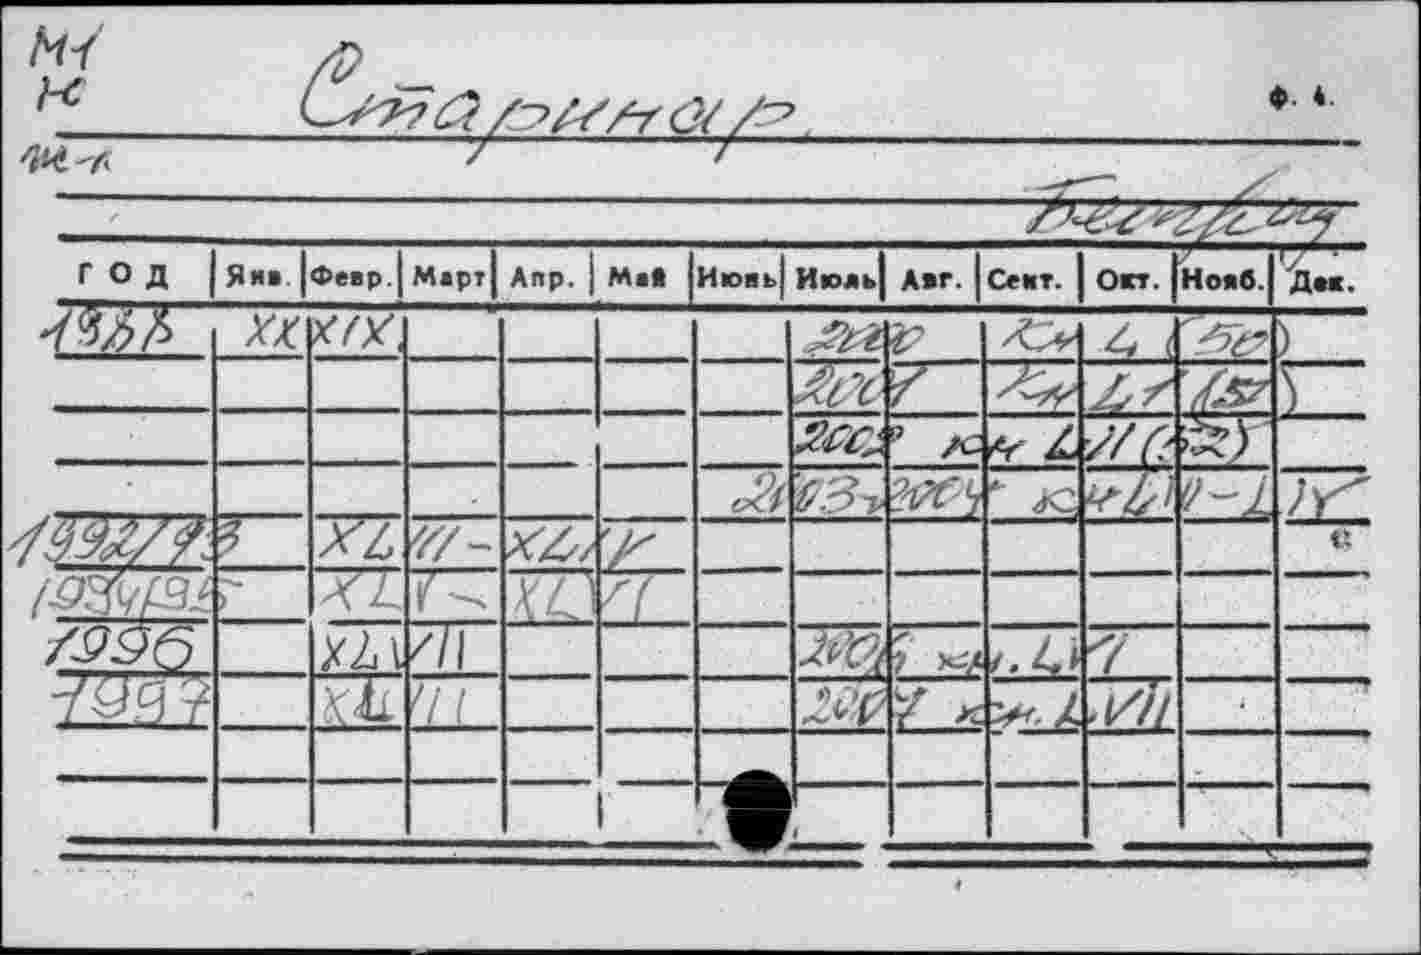 М-1
К
Старинар
Ф. 4.
т-л
Белград
ГОД Янв. Февр. Март Апр. Май Июнь Июль Авг. Сент. Окт. Нояб. Дек.
1988 XXXIX. 2000 Кн L (50)
2001 Кн LI (51)
2002 кн LII (52)
2003-2004 кн LIII-LIV
1992/93 XLIII-XLIV
1994/95 XLV-XLVI
1996 XLVII 2006 кн. LVI
1997 XLVIII 2007 кн. LVII